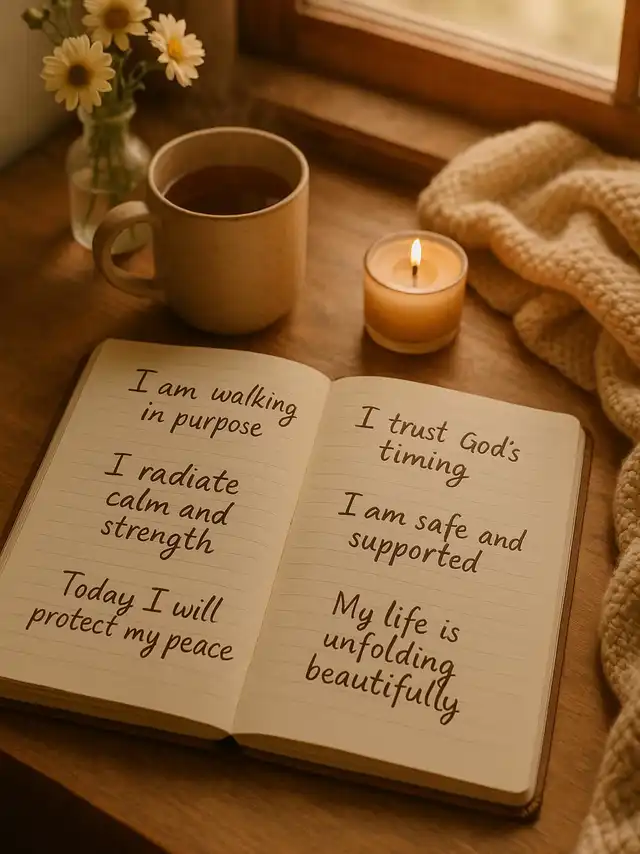 I am walking
in purpose
I radiate
calm and
strength
Today I will
protect my peace
I trust God's
timing
I am safe and
supported
My life is
unfolding
beautifully